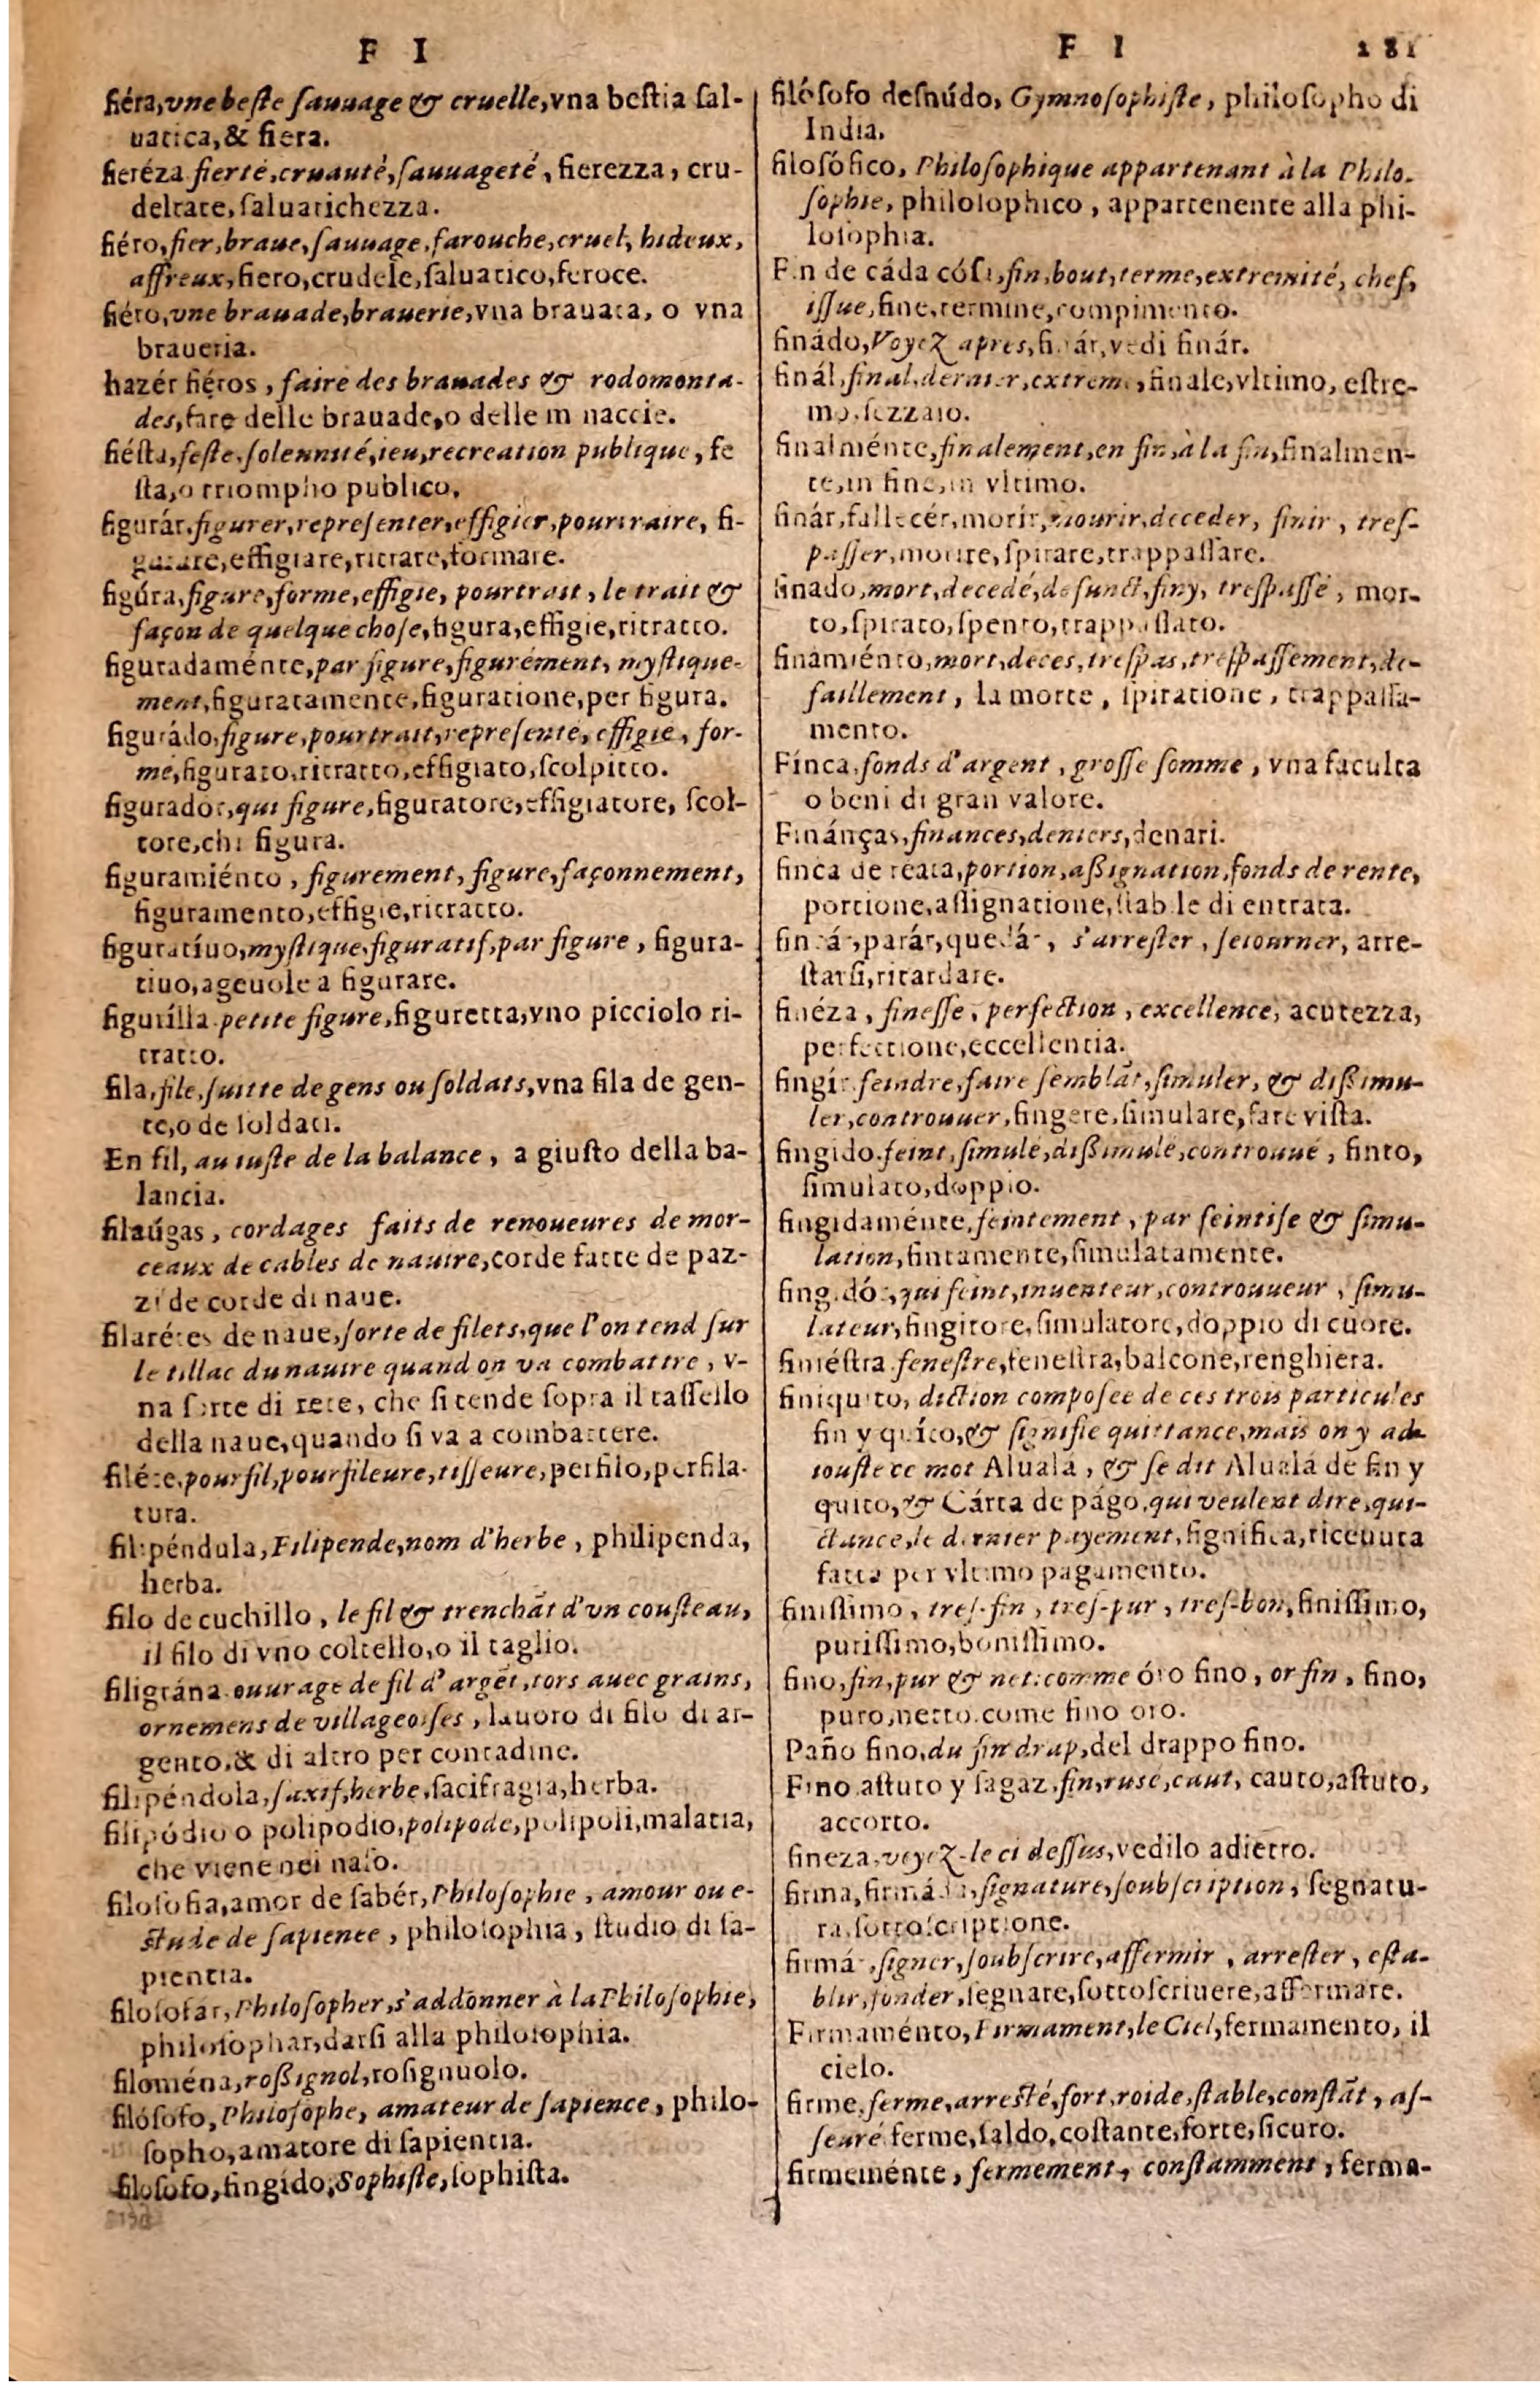 F I
fiéra, vne beſte ſauuage & cruelle, vna beſtia ſal-
uatica, & fiera.
fieréza fierté, cruauté, ſauuageté, fierezza, cru-
deltate, ſaluatichezza.
fiéro, fier, braue, ſauuage, farouche, cruel, hideux,
affreux, fiero, crudele, ſaluatico, feroce.
fiéro, vne brauade, brauerie, vna brauata, o vna
braueria.
hazér fiéros, faire des brauades & rodomonta-
des, fare delle brauade, o delle m naccie.
fiéſta, feſte, ſolennité, ieu, recreation publique, fe
ſta, o triompho publico.
figurár, figurer, repreſenter, effigier, pourtraire, fi-
gurare, effigiare, ritrare, formare.
figúra, figure, forme, effigie, pourtrait, le trait &
façon de quelque choſe, figura, effigie, ritratto.
figuradaménte, par figure, figurément, myſtique-
ment, figuratamente, figuratione, per figura.
figurádo, figure, pourtrait, repreſenté, effigie, for-
mé, figurato, ritratto, effigiato, ſcolpitto.
figurador, qui figure, figuratore, effigiatore, ſcol-
tore, chi figura.
figuramiénto, figurement, figure, façonnement,
figuramento, effigie, ritratto.
figuratíuo, myſtique, figuratif, par figure, figura-
tiuo, ageuole a figurare.
figurílla petite figure, figuretta, vno picciolo ri-
tratto.
fila, file, ſuitte de gens ou ſoldats, vna fila de gen-
te, o de ſoldati.
En fil, au iuſte de la balance, a giuſto della ba-
lancia.
filaúgas, cordages faits de renoueures de mor-
ceaux de cables de nauire, corde fatte de paz-
zi de corde di naue.
filarétes de naue, ſorte de filets, que l'on tend ſur
le tillac du nauire quand on va combattre, v-
na ſorte di rete, che ſi tende ſopra il taſſello
della naue, quando ſi va a combattere.
filéte, pourfil, pourfileure, tiſſeure, perfilo, perfila-
tura.
filipéndula, Filipende, nom d'herbe, philipenda,
herba.
filo de cuchillo, le fil & trenchãt d'vn couſteau,
il filo di vno coltello, o il taglio.
filigrána ouurage de fil d'argẽt, tors auec grains,
ornemens de villageoiſes, lauoro di filo di ar-
gento, & di altro per contadine.
filipéndola, ſaxif, herbe, ſacifragia, herba.
filipódio o polipodio, polipode, polipoli, malatia,
che viene nei naſo.
filoſofia, amor de ſabér, Philoſophie, amour ou e-
ſtude de ſapience, philoſophia, ſtudio di ſa-
pientia.
filoſofár, Philoſopher, s'addonner à la Philoſophie,
philoſophar, darſi alla philoſophia.
filoména, roßignol, roſignuolo.
filóſofo, Philoſophe, amateur de ſapience, philo-
ſopho, amatore di ſapientia.
filoſofo, fingído, Sophiſte, ſophiſta.
F I 181
filóſofo deſnúdo, Gymnoſophiſte, philoſopho di
India.
filoſófico, Philoſophique appartenant à la Philo-
ſophie, philoſophico, appartenente alla phi-
loſophia.
Fin de cáda cóſa, fin, bout, terme, extremité, chef,
iſſue, fine, termine, compimento.
finádo, Voyez apres, finár, vedi finár.
finál, final, dernier, extreme, finale, vltimo, eſtre-
mo, ſezzaio.
finalménte, finalement, en fin, à la fin, finalmen-
te, in fine, in vltimo.
finár, fallecér, morír, mourir, deceder, finir, treſ-
paſſer, morire, ſpirare, trappaſſare.
finado, mort, decedé, defunct, finy, treſpaſſé, mor-
to, ſpirato, ſpento, trappaſſato.
finamiénto, mort, deces, treſpas, treſpaſſement, de-
faillement, la morte, ſpiratione, trappaſſa-
mento.
Fínca, fonds d'argent, groſſe ſomme, vna faculta
o beni di gran valore.
Finánças, finances, deniers, denari.
finca de reata, portion, aßignation, fonds de rente,
portione, aſſignatione, ſtab le di entrata.
fincár, parár, quedár, s'arreſter, ſeiourner, arre-
ſtarſi, ritardare.
finéza, fineſſe, perfection, excellence, acutezza,
perfettione, eccellentia.
fingír feindre, faire ſemblãt, ſimuler, & dißimu-
ler, controuuer, fingere, ſimulare, fare viſta.
fingido feint, ſimulé, dißimulé, controuué, finto,
ſimulato, doppio.
fingidaménte, feintement, par feintiſe & ſimu-
lation, fintamente, ſimulatamente.
fingidór, qui feint, inuenteur, controuueur, ſimu-
lateur, fingitore, ſimulatore, doppio di cuore.
finiéſtra feneſtre, feneſtra, balcone, renghiera.
finiquito, diction compoſee de ces trois particules
fin y quíto, & ſignifie quittance, mais on y ad-
iouſte ce mot Alualá, & ſe dit Alualá de fin y
quito, & Cárta de págo, qui veulent dire, qui-
ctance, le dernier payement, ſignifica, riceuuta
fatta per vltimo pagamento.
finiſſimo, treſ-fin, treſ-pur, treſ-bon, finiſſimo,
puriſſimo, boniſſimo.
fino, fin, pur & net: comme óro fino, or fin, fino,
puro, netto, come fino oro.
Paño fino, du fin drap, del drappo fino.
Fino aſtuto y ſagaz, fin, ruſé, caut, cauto, aſtuto,
accorto.
fineza, voyez-le ci deſſus, vedilo adietro.
firma, firmáda, ſignature, ſoubſcription, ſegnatu-
ra, ſottoſcriptione.
firmár, ſigner, ſoubſcrire, affermir, arreſter, eſta-
blir, fonder, ſegnare, ſottoſcriuere, affermare.
Firmaménto, Firmament, le Ciel, fermamento, il
cielo.
firme, ferme, arreſté, fort, roide, ſtable, conſtãt, aſ-
ſeuré ferme, ſaldo, coſtante, forte, ſicuro.
firmeménte, fermement, conſtamment, ferma-